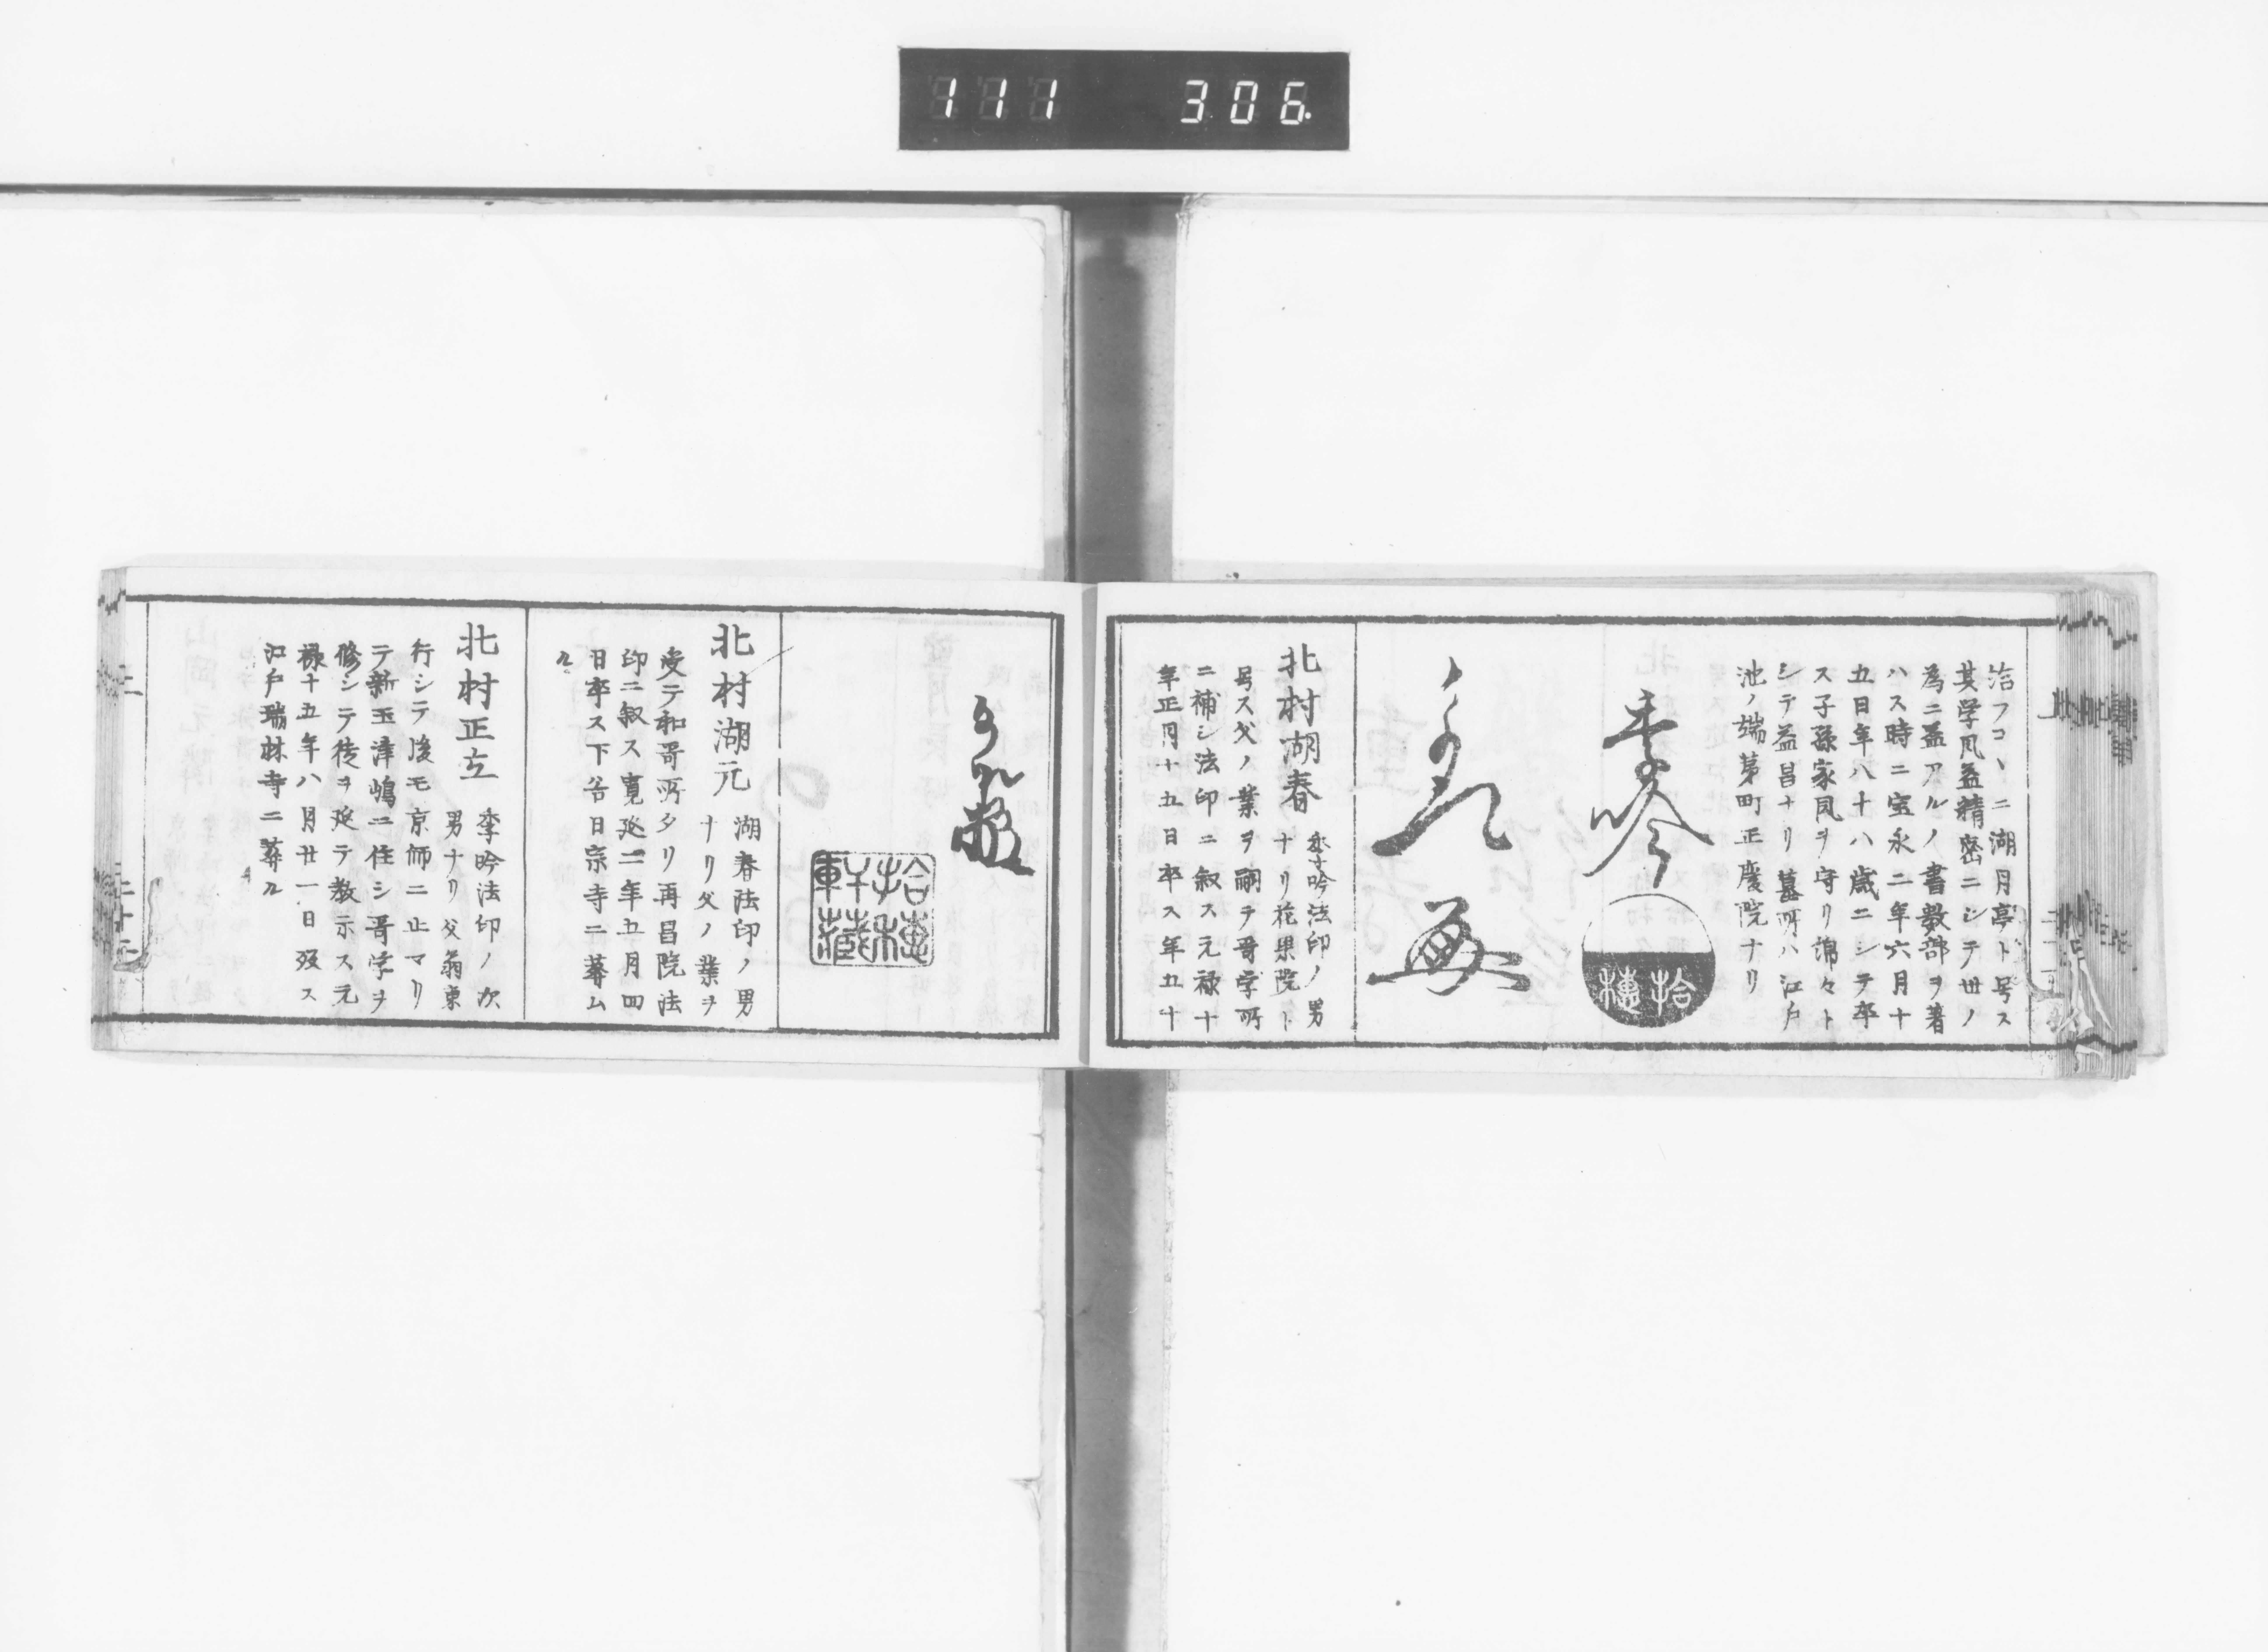 111 306.
治フコヽニ湖月亭ト号ス
其学風益精密ニシテ世ノ
為ニ益アルノ書数部ヲ著
ハス時ニ宝永二年六月十
五日年八十八歳ニシテ卒
ス子孫家風ヲ守リ綿々ト
シテ益昌ナリ墓所ハ江戸
池ノ端茅町正慶院ナリ
季吟
拾穂
北村湖春
季吟法印ノ男
ナリ花果院ト
号ス父ノ業ヲ嗣テ哥学所
ニ補シ法印ニ叙ス元禄十
年正月十五日卒ス年五十
拾穂
軒蔵
北村湖元
湖春法印ノ男
ナリ父ノ業ヲ
受テ和哥所タリ再昌院法
印ニ叙ス寛延二年五月四
日卒ス下谷日宗寺ニ葬ム
ル
北村正立
季吟法印ノ次
男ナリ父翁東
行シテ後モ京師ニ止マリ
テ新玉津嶋ニ住シ哥学ヲ
修シテ徒ヲ延テ教示ス元
禄十五年八月廿一日歿ス
江戸瑞林寺ニ葬ル